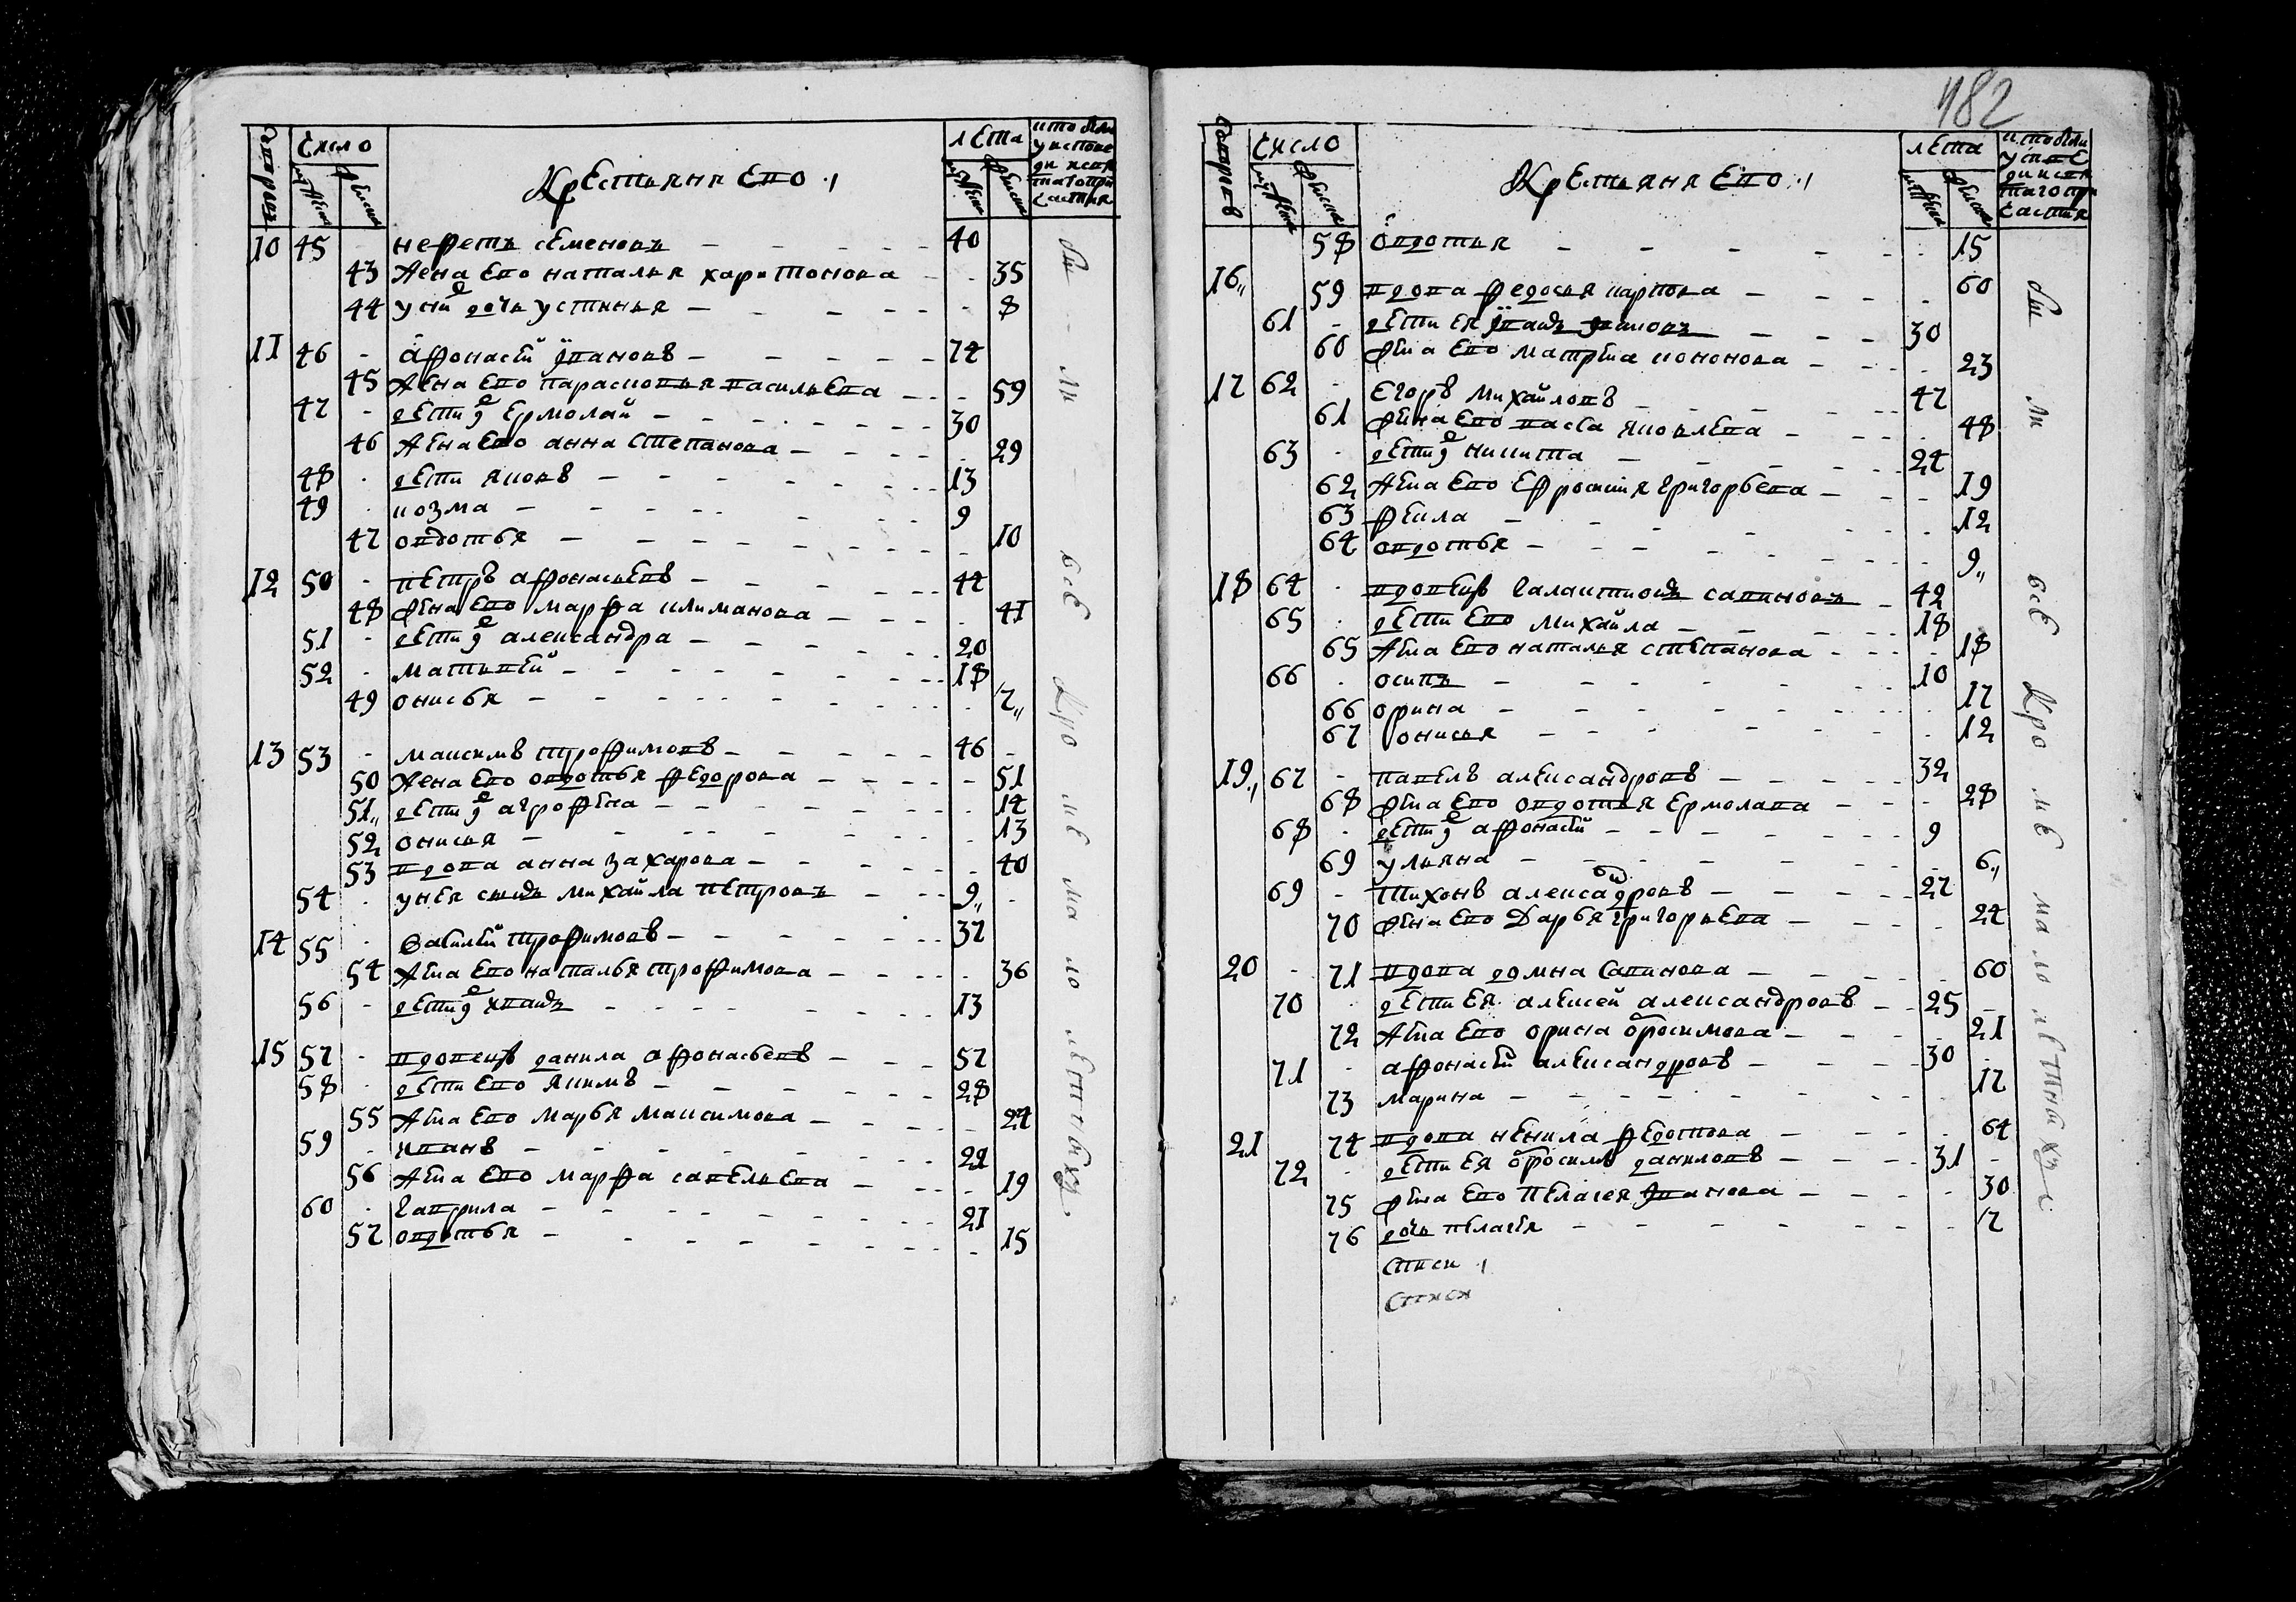 число
лета
Крестьяня ево
10 45 - нефетъ семеновъ 40
43 жена ево наталья харитонова 35
44 у них дочь устинья 8
11 46 - афонасей ивановъ 74
45 жена ево парасковья васильева 59
47 - дети их ермолай 30
46 жена ево анна степанова 29
48 - дети яковъ 13
49 - козма 9
47 овдотья 10
12 50 - петръ афонасьевъ 44
48 жена ево марфа климанова 41
51 - дети их александра 20
52 - матьвей 18
49 онисья 7
13 53 - максимъ трофимовъ 46
50 жена ево овдотья федорова 51
51 дети их агрофена 14
52 онисья 13
53 вдова анна захарова 40
54 - у нея сынъ михайла петровъ 9
14 55 - василей трофимовъ 37
54 жена ево наталья трофимова 36
56 - дети их иванъ 13
15 57 - вдовецъ данила афонасьевъ 57
58 - дети ево якимъ 28
55 жена ево марья максимова 24
59 - иванъ 22
56 жена ево марфа савельева 19
60 - гаврила 21
57 овдотья 15
были все кроме малолетныхъ
482
число
лета
Крестьяня ево
58 овдотья 15
16 59 вдова федосья карпова 60
61 - дети ея иванъ ивановъ 30
60 жена ево матрена кононова 23
17 62 - егоръ михайловъ 47
61 жена ево васса яковлева 48
63 - дети их никита 24
62 жена ево ефросинья григорьева 19
63 фекла 12
64 овдотья 9
18 64 - вдовецъ галактионъ савиновъ 42
65 - дети ево михайла 18
65 жена ево наталья степанова 18
66 - осипъ 10
66 орина 17
67 онисья 12
19 67 - павелъ александровъ 32
68 жена ево овдотья ермолава 28
68 - дети их афонасей 9
69 ульяна 6
69 - тихонъ александровъ 27
70 жена ево дарья григорьева 24
20 - 71 вдова домна савинова 60
70 - дети ея алексей александровъ 25
72 жена ево орина обросимова 21
71 - афонасей александровъ 30
73 марина 17
21 74 вдова ненила федотова 64
72 - дети ея обросимъ даниловъ 31
75 жена ево пелагея иванова 30
76 дочь пелагея 7
были все кроме малолетныхъ